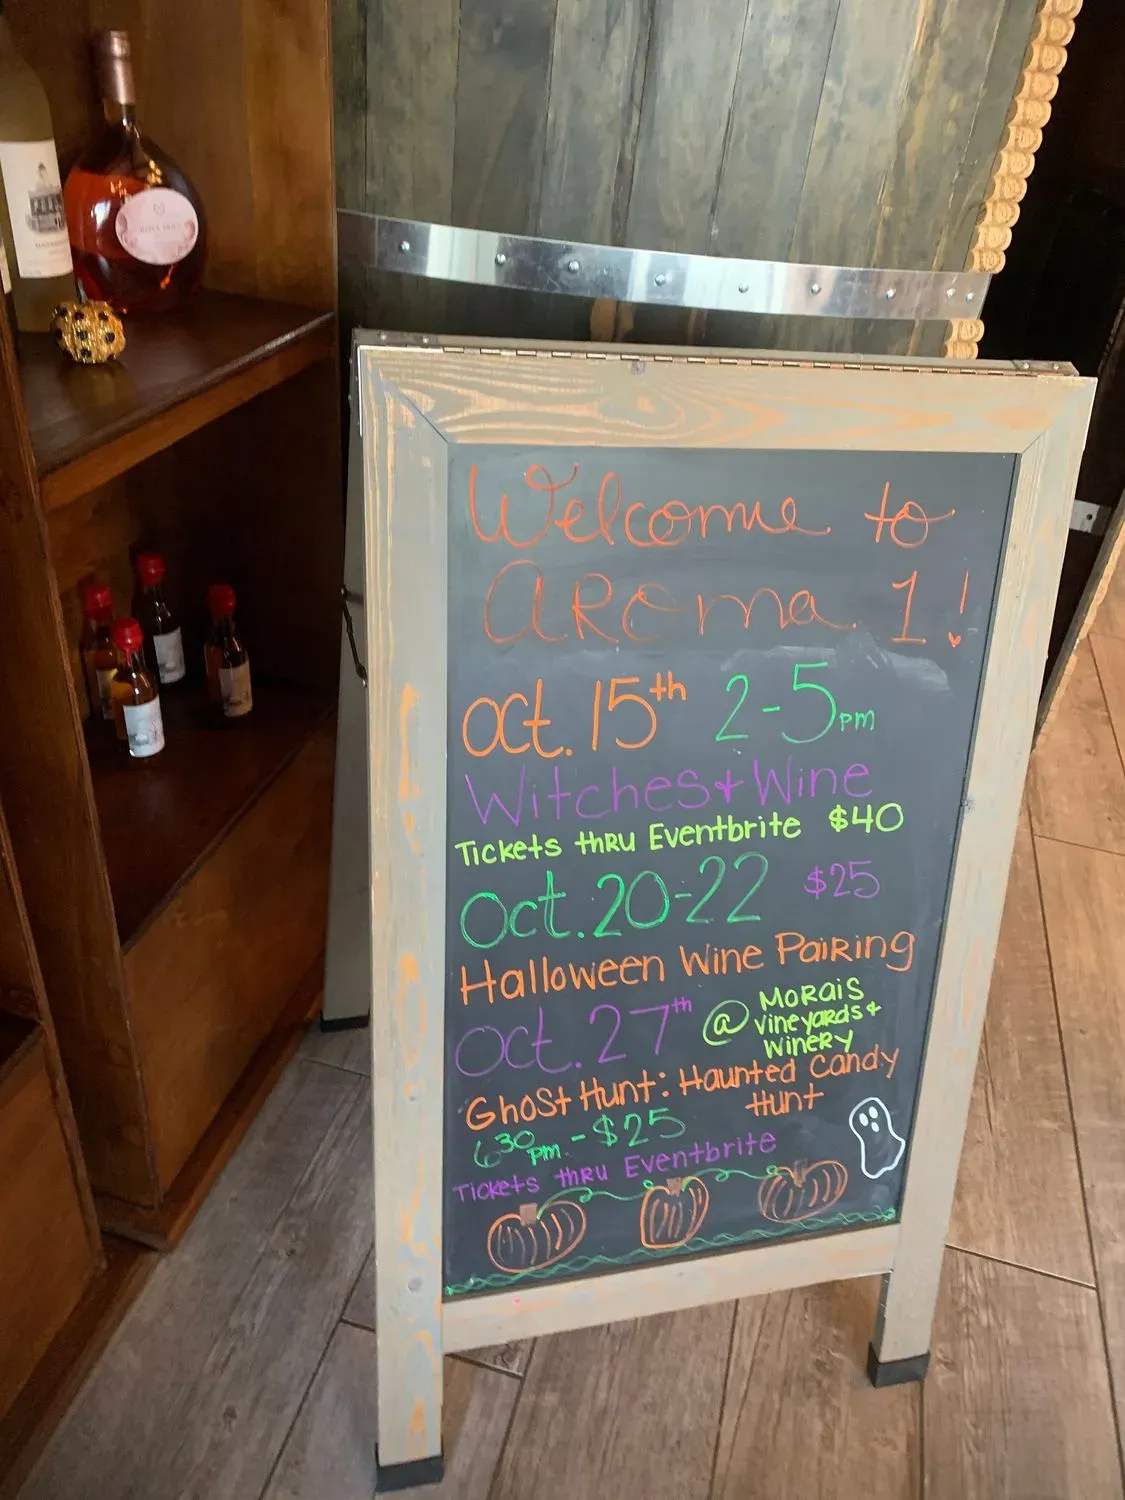 Welcome to
AROMA 1!
Oct. 15th 2-5pm
Witches + Wine
Tickets thRu Eventbrite $40
Oct. 20-22 $25
Halloween Wine PaiRing
Oct. 27th @ MoRais
vineyards +
WineRy
GHoSt Hunt: Haunted Candy
Hunt
6:30pm - $25
Tickets thRu Eventbrite